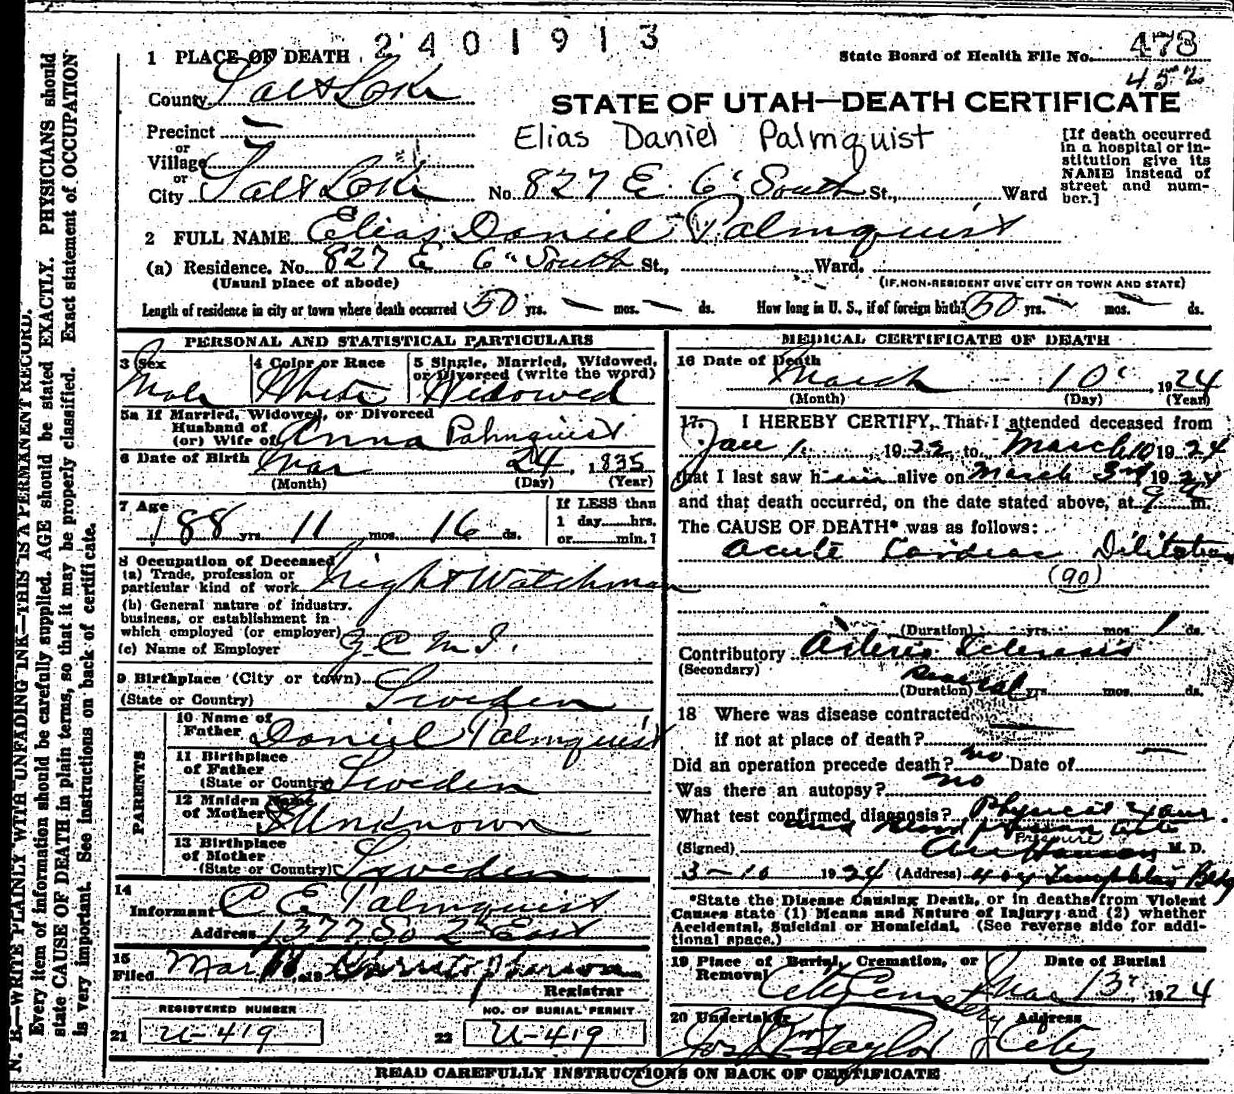 2401913
1 PLACE OF DEATH
State Board of Health File No. 478
452
County Salt Lake
STATE OF UTAH—DEATH CERTIFICATE
Precinct
or
Village
or
City Salt Lake
Elias Daniel Palmquist
No. 827 E. 6" South St., Ward
[If death occurred
in a hospital or in-
stitution give its
NAME instead of
street and num-
ber.]
2 FULL NAME Elias Daniel Palmquist
(a) Residence. No. 827 E 6" South St., Ward.
(Usual place of abode)
(IF NON-RESIDENT GIVE CITY OR TOWN AND STATE)
Length of residence in city or town where death occurred 50 yrs. — mos. — ds. How long in U. S., if of foreign birth? 50 yrs. — mos. — ds.
PERSONAL AND STATISTICAL PARTICULARS
3 Sex
Male
4 Color or Race
White
5 Single, Married, Widowed,
or Divorced (write the word)
Widowed
5a If Married, Widowed, or Divorced
Husband of
(or) Wife of Anna Palmquist
6 Date of Birth Mar 24, 1835
(Month) (Day) (Year)
7 Age
88 yrs. 11 mos. 16 ds.
If LESS than
1 day....hrs.
or....min.?
8 Occupation of Deceased
(a) Trade, profession or
particular kind of work Night Watchman
(b) General nature of industry,
business, or establishment in
which employed (or employer)
(c) Name of Employer Z.C.M.I.
9 Birthplace (City or town)
(State or Country) Sweden
PARENTS
10 Name of
Father Daniel Palmquist
11 Birthplace
of Father
(State or Country) Sweden
12 Maiden Name
of Mother Unknown
13 Birthplace
of Mother
(State or Country) Sweden
14
Informant C E Palmquist
Address 1377 So 2nd East
15
Filed Mar
Registrar
REGISTERED NUMBER
21 U-419
NO. OF BURIAL PERMIT
22 U-419
MEDICAL CERTIFICATE OF DEATH
16 Date of Death
March 10 1924
(Month) (Day) (Year)
17. I HEREBY CERTIFY, That I attended deceased from
Jan 1. 1922 to March 10 1924
that I last saw him alive on March 3rd 1924
and that death occurred, on the date stated above, at 9 a m.
The CAUSE OF DEATH* was as follows:
Acute Cardiac Dilitation
(90)
(Duration) yrs. mos. 1 ds.
Contributory Arterio Sclerosis
(Secondary)
(Duration) several yrs. mos. ds.
18 Where was disease contracted
if not at place of death?
Did an operation precede death? no Date of —
Was there an autopsy? no
What test confirmed diagnosis? Physical Exam.
and blood pressure
Pressure
(Signed) Hanson M. D.
3-10 1924 (Address) 404 Templeton Bldg
*State the Disease Causing Death, or in deaths from Violent
Causes state (1) Means and Nature of Injury; and (2) whether
Accidental, Suicidal or Homicidal. (See reverse side for addi-
tional space.)
19 Place of Burial, Cremation, or
Removal
City Cemetery
Date of Burial
Mar 13" 1924
20 Undertaker
Jos Wm Taylor
Address
City
READ CAREFULLY INSTRUCTIONS ON BACK OF CERTIFICATE
N. B.—WRITE PLAINLY WITH UNFADING INK—THIS IS A PERMANENT RECORD.
Every item of information should be carefully supplied. AGE should be stated EXACTLY. PHYSICIANS should
state CAUSE OF DEATH in plain terms, so that it may be properly classified. Exact statement of OCCUPATION
is very important. See instructions on back of certificate.